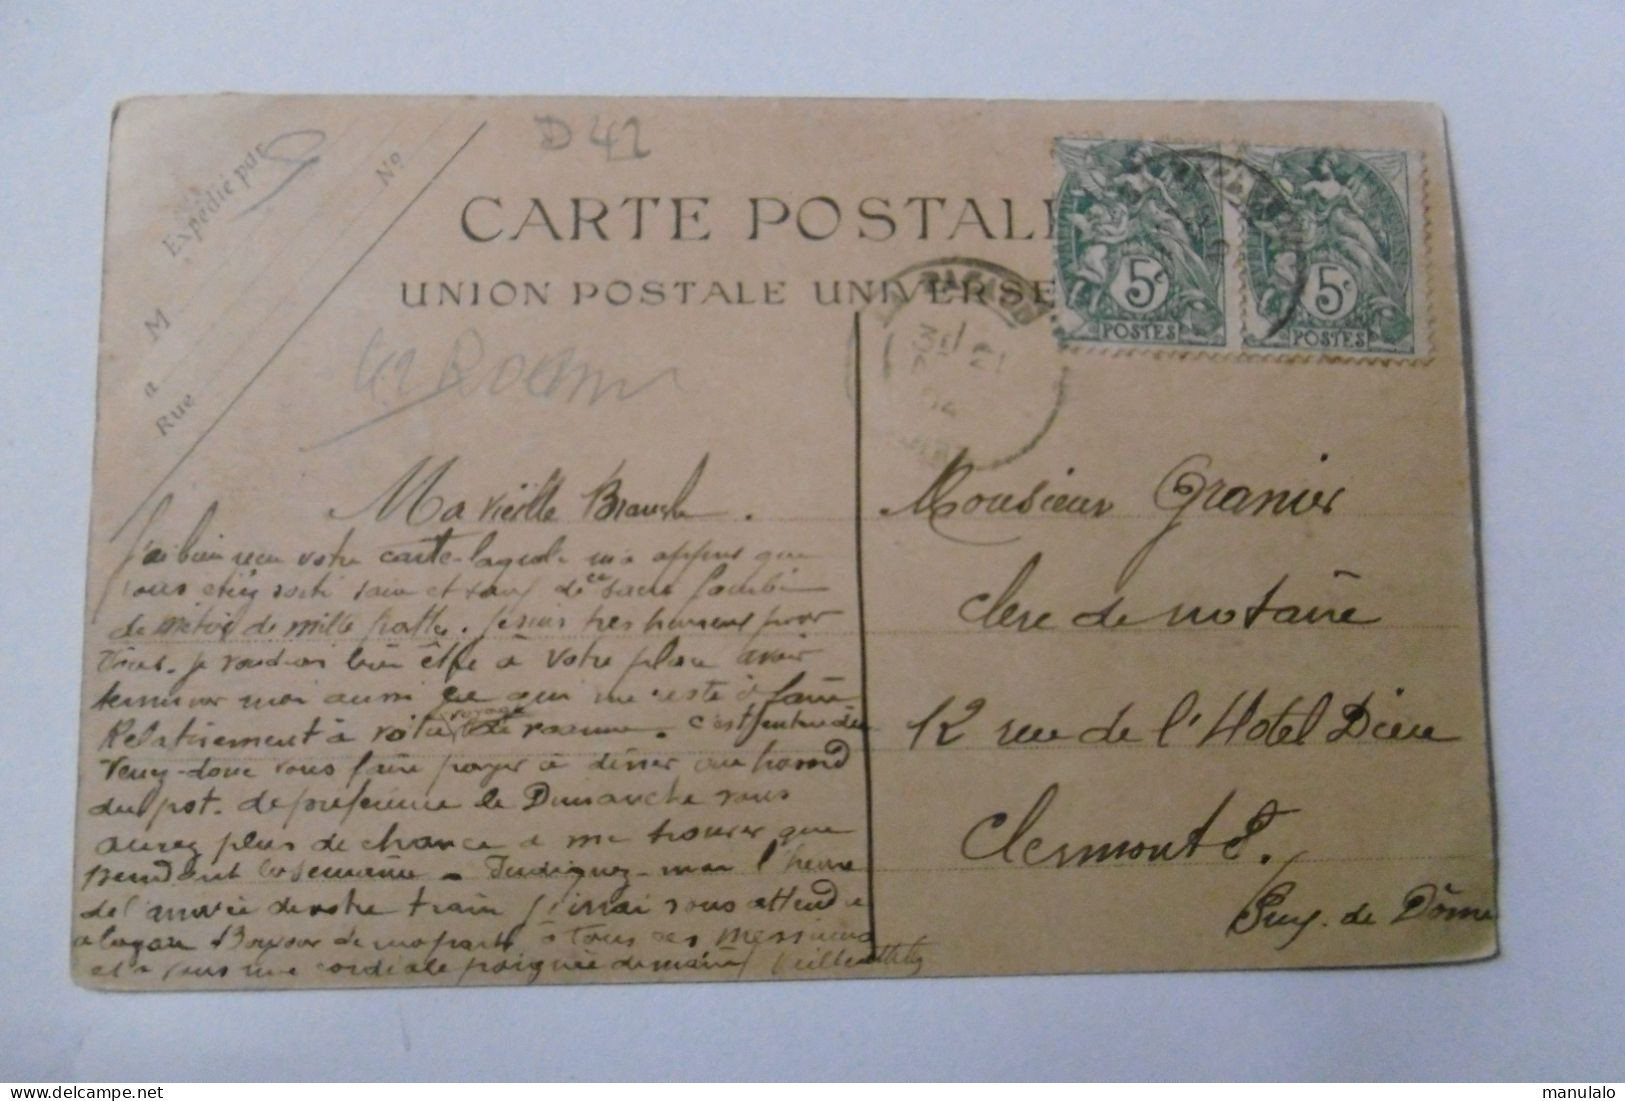 D 42
Expédié par
No
M
a
Rue
CARTE POSTALE
UNION POSTALE UNIVERSE
5c
POSTES
5c
POSTES
3E
21
04
Ma vieille Branche.
J'ai bien recu votre carte laquelle m'a appris que
vous etiez sorti sain et sauf de ce sacré fourbi
de métier de mille pattes. Je suis tres heureux pour
vous. je voudrais bien être à votre place avoir
terminer moi aussi ce qui me reste à faire
Relativement à votre voyage de roanne. c'est entendu
Venez-donc vous faire payer à diner au hasard
du pot. de preference le Dimanche vous
aurez plus de chance a me trouver que
pendant la semaine - Indiquez-moi l'heure
de l'arrivée de votre train j'irai vous attendre
a la gare Bonjour de ma part à tous ces messieurs
et à vous une cordiale poignée de main
Monsieur Granier
clerc de notaire
12 rue de l'Hotel Dieu
Clermont F.
Puy. de Dôme
www.delcampe.net
manulalo